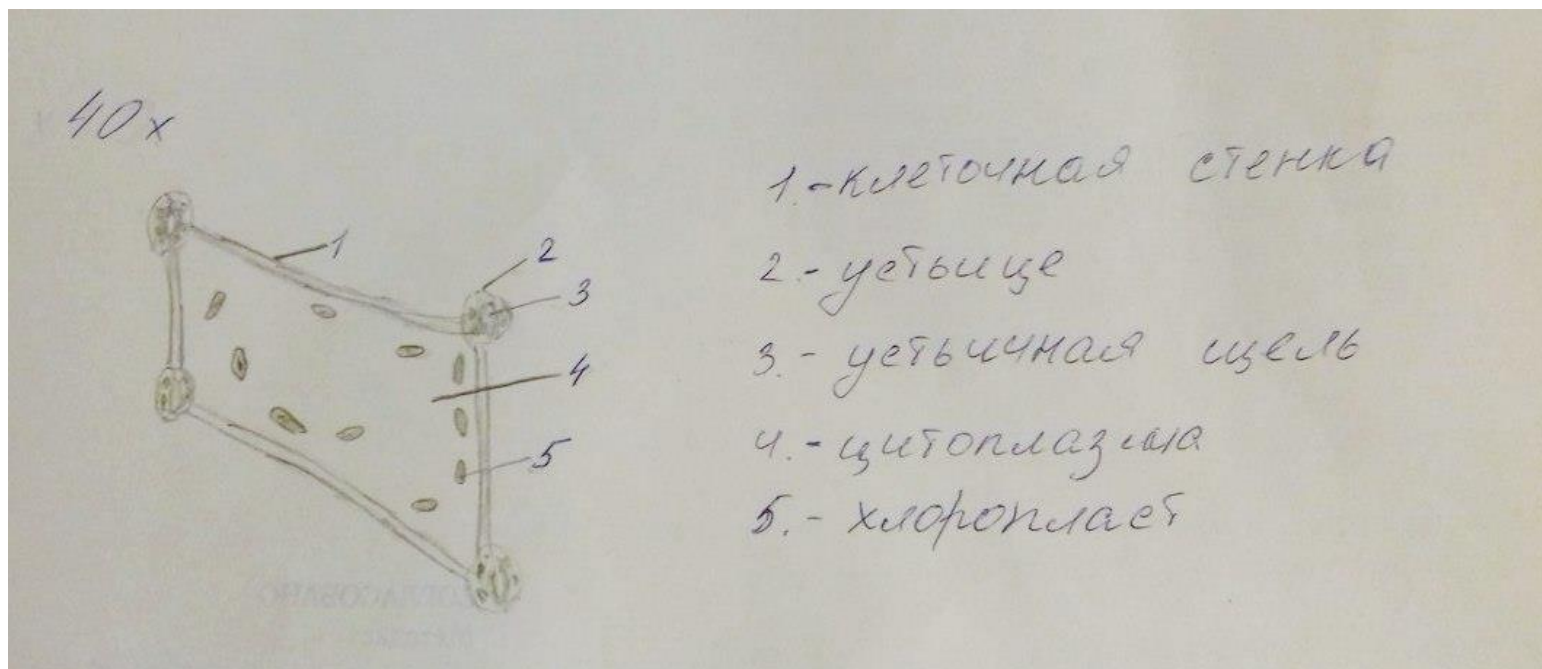 40x
1
2
3
4
5
1.-клеточная стенка
2.-устьице
3.-устьичная щель
4.-цитоплазма
5.-хлоропласт